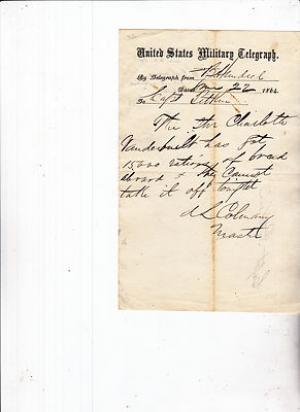 United States Military Telegraph.
By Telegraph from
22 186
To Capt
The Str Charlotte
Vanderbuilt has got
15,000 rations of bread
aboard & They Cannot
take it off tonight
Master